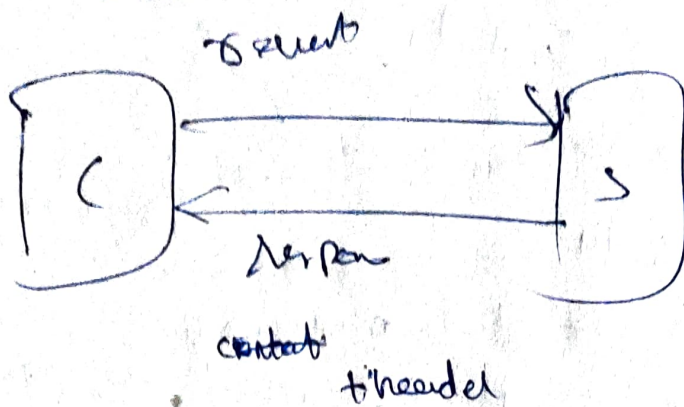 request
C
S
respon
content
+ header